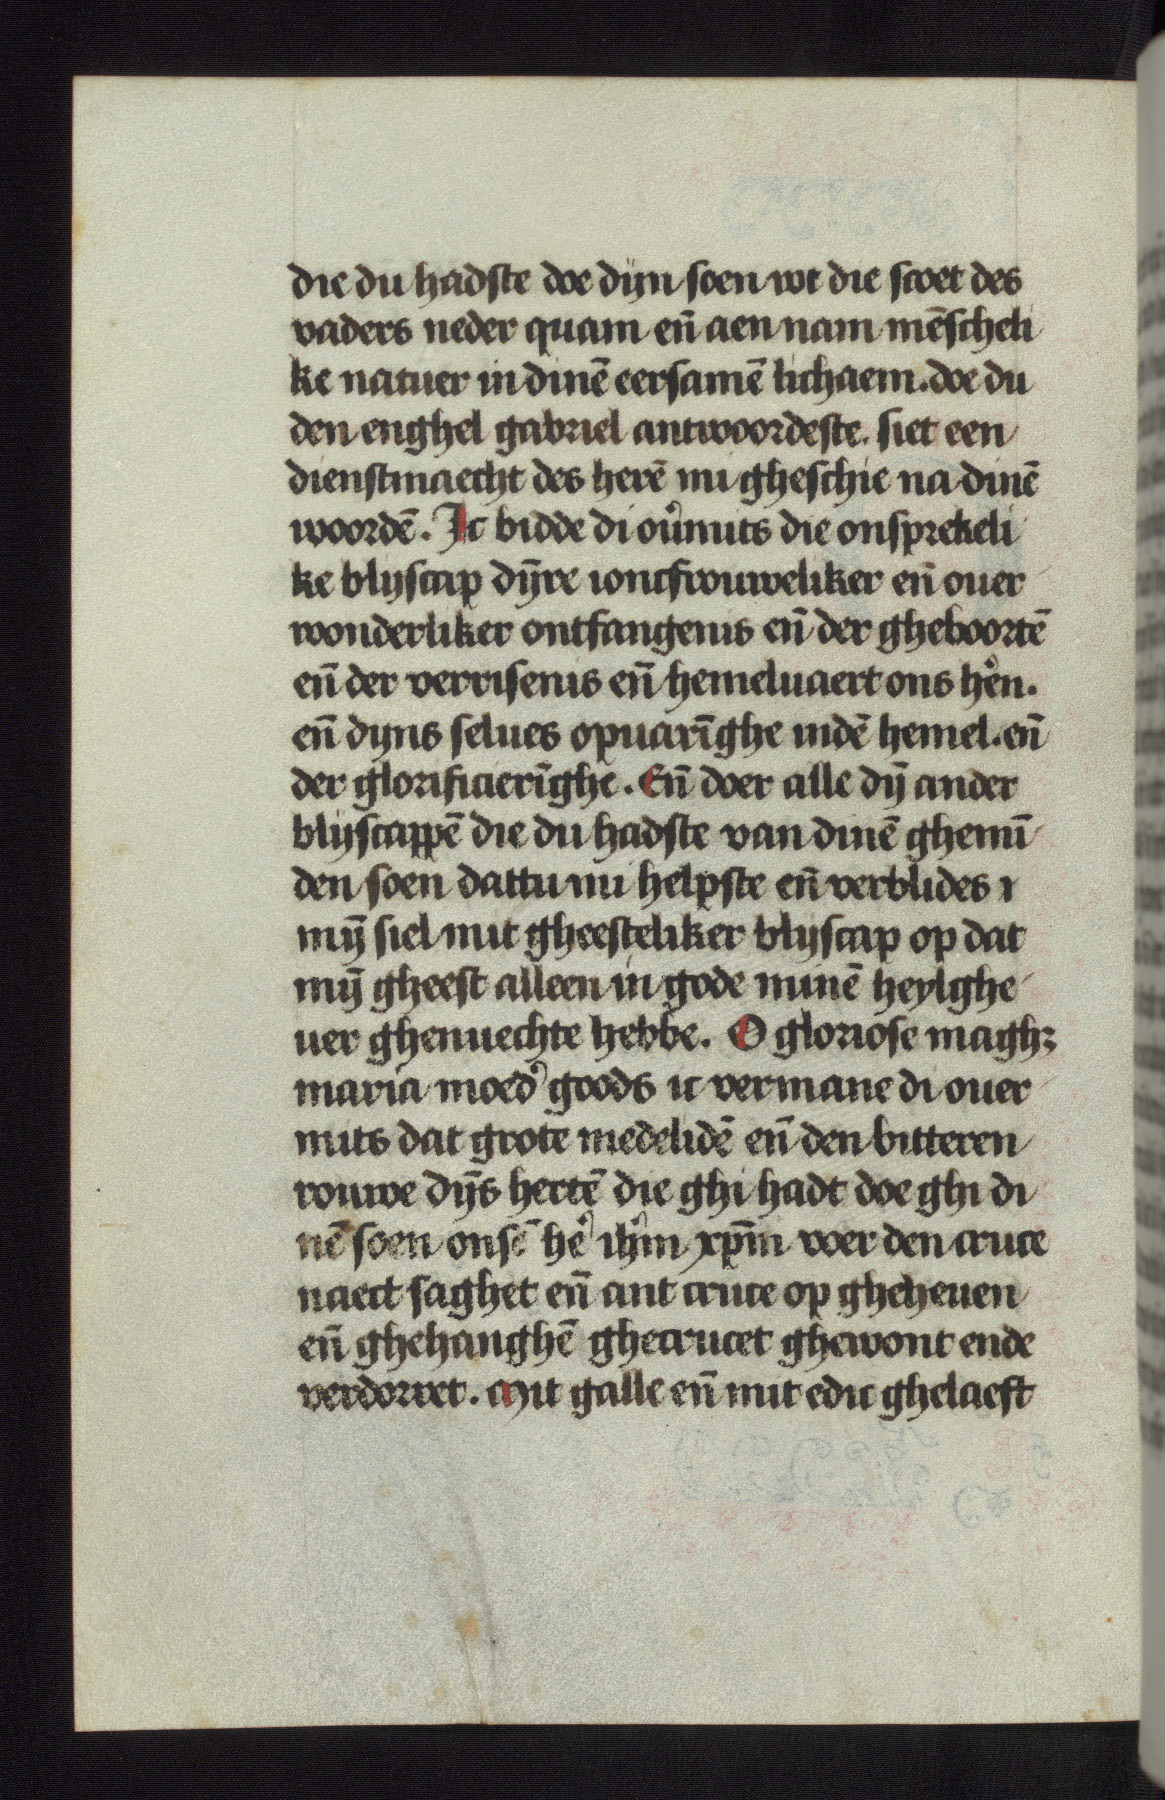 die du hadste doe dijn soen wt die scoet des
vaders neder quam eñ aen nam mēscheli
ke natuer in dinē eersamē lichaem. doe du
den enghel gabriel antwoordeste. siet een
dienstmaecht des herē mi gheschie na dinē
woordē. Ic bidde di ou͛mits die onsprekeli
ke blijscap dȳre ioncfrouweliker eñ ouer
wonderliker ontfangenis eñ der gheboortē
eñ der verrisenis eñ hemeluaert ons he͛n.
eñ dyns selues opuarīghe indē hemel. eñ
der glorificierīghe. Eñ doer alle dȳ ander
blijscappē die du hadste van dinē ghemī
den soen dattu mi helpste eñ verblides ı
mȳ siel mit gheesteliker blijscap op dat
mȳ gheest alleen in gode minē heylghe
uer ghenuechte hebbe. O gloriose maghꝫ
maria moed͛ goods ic vermane di ouer
mits dat grote medelidē eñ den bitteren
rouwe dȳs hertē die ghi hadt doe ghi di
nē soen onsē he͛ ih͛m xp̄m voer den cruce
naect saghet eñ ant cruce op gheheuen
eñ ghehanghē ghecrucet ghewont ende
verdorret. Mit galle eñ mit edic ghelaeft